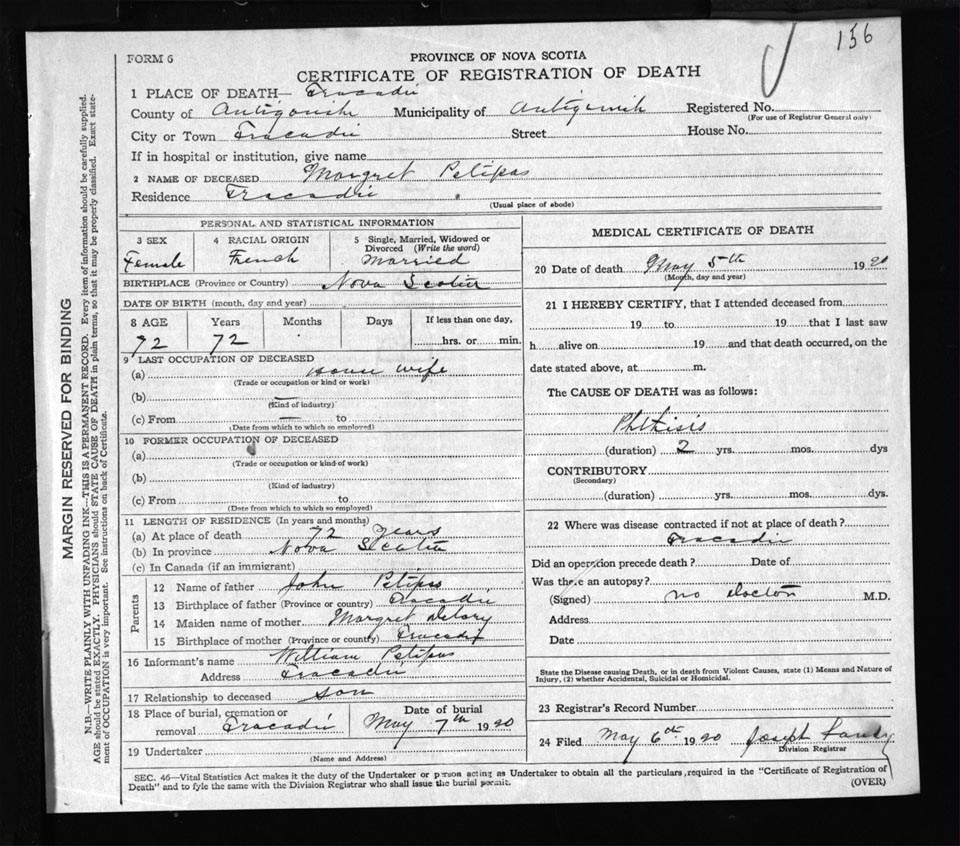 156
FORM 6
PROVINCE OF NOVA SCOTIA
CERTIFICATE OF REGISTRATION OF DEATH
1 PLACE OF DEATH— Tracadie
County of Antigonish Municipality of Antigonish Registered No.
(For use of Registrar General only)
City or Town Tracadie Street House No.
If in hospital or institution, give name
2 NAME OF DECEASED Margret Petipas
Residence Tracadie
(Usual place of abode)
PERSONAL AND STATISTICAL INFORMATION
3 SEX 4 RACIAL ORIGIN 5 Single, Married, Widowed or
Divorced (Write the word)
Female French Married
BIRTHPLACE (Province or Country) Nova Scotia
DATE OF BIRTH (month, day and year)
8 AGE Years Months Days If less than one day,
72 72 hrs. or min.
9 LAST OCCUPATION OF DECEASED
(a) House wife
(Trade or occupation or kind or work)
(b) —
(Kind of industry)
(c) From — to
(Date from which to which so employed)
10 FORMER OCCUPATION OF DECEASED
(a)
(Trade or occupation or kind of work)
(b)
(Kind of industry)
(c) From to
(Date from which to which so employed)
11 LENGTH OF RESIDENCE (In years and months)
(a) At place of death 72 years
(b) In province Nova Scotia
(c) In Canada (if an immigrant)
Parents
12 Name of father John Petipas
13 Birthplace of father (Province or country) Tracadie
14 Maiden name of mother Margret Delory
15 Birthplace of mother (Province or country) Tracadie
16 Informant's name William Petipas
Address Tracadie
17 Relationship to deceased son
18 Place of burial, cremation or
removal Tracadie
Date of burial
May 7th 1920
19 Undertaker
(Name and Address)
MEDICAL CERTIFICATE OF DEATH
20 Date of death May 5th 1920
(Month, day and year)
21 I HEREBY CERTIFY, that I attended deceased from
19 to 19 that I last saw
h alive on 19 and that death occurred, on the
date stated above, at m.
The CAUSE OF DEATH was as follows:
Phthisis
(duration) 2 yrs. mos. dys
CONTRIBUTORY
(Secondary)
(duration) yrs. mos. dys.
22 Where was disease contracted if not at place of death?
Tracadie
Did an operation precede death? Date of
Was there an autopsy?
(Signed) no Doctor M.D.
Address
Date
State the Disease causing Death, or in death from Violent Causes, state (1) Means and Nature of
Injury, (2) whether Accidental, Suicidal or Homicidal.
23 Registrar's Record Number
24 Filed May 6th 1920 Joseph
Division Registrar
SEC. 46—Vital Statistics Act makes it the duty of the Undertaker or person acting as Undertaker to obtain all the particulars required in the "Certificate of Registration of
Death" and to fyle the same with the Division Registrar who shall issue the burial permit. (OVER)
MARGIN RESERVED FOR BINDING
N.B.—WRITE PLAINLY WITH UNFADING INK—THIS IS A PERMANENT RECORD. Every item of information should be carefully supplied.
AGE should be stated EXACTLY. PHYSICIANS should STATE CAUSE OF DEATH in plain terms, so that it may be properly classified. Exact state-
ment of OCCUPATION is very important. See instructions on back of Certificate.